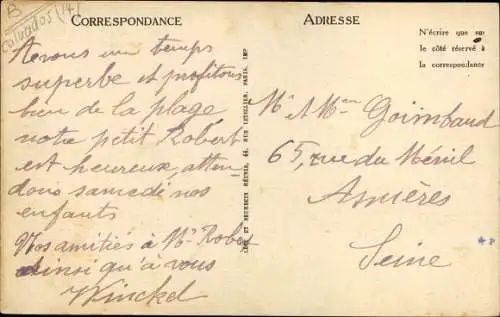 B
Calvados (14)
CORRESPONDANCE
Avons un temps
superbe et profitons
bien de la plage
notre petit Robert
est heureux, atten
dons samedi nos
enfants
Vos amitiés à Mr Robert
ainsi qu'à vous
Winckel
LÉVY ET NEURDEIN RÉUNIS, 44, RUE LETELLIER, PARIS, IMP
ADRESSE
N'écrire que sur
le côté réservé à
la correspondance
Mr et Mme Goimbaud
65, rue du Ménil
Asnières
Seine